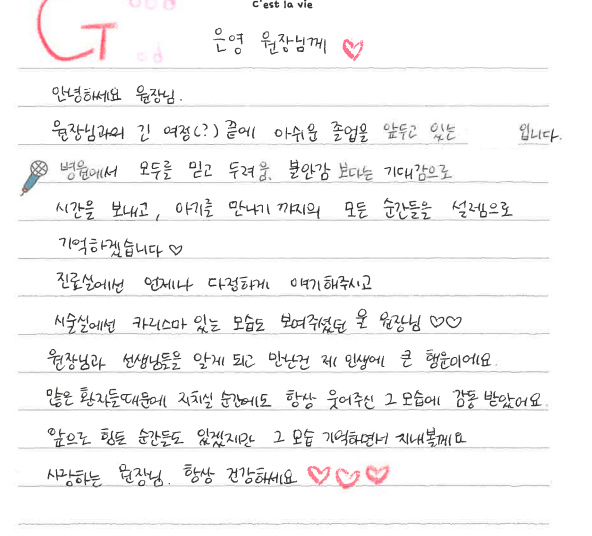 C'est la vie
G
은영 원장님께 ♡
안녕하세요 원장님.
원장님과의 긴 여정(?) 끝에 아쉬운 졸업을 앞두고 있는 입니다.
병원에서 모두를 믿고 두려움, 불안감 보다는 기대감으로
시간을 보내고, 아기를 만나기까지의 모든 순간들을 설렘으로
기억하겠습니다♡
진료실에선 언제나 다정하게 얘기해주시고
시술실에선 카리스마 있는 모습도 보여주셨던 울 원장님♡♡
원장님과 선생님들을 알게 되고 만난건 제 인생에 큰 행운이에요.
많은 환자들때문에 지치실 순간에도 항상 웃어주신 그 모습에 감동 받았어요.
앞으로 힘든 순간들도 있겠지만 그 모습 기억하면서 지내볼게요
사랑하는 원장님. 항상 건강하세요 ♡♡♡